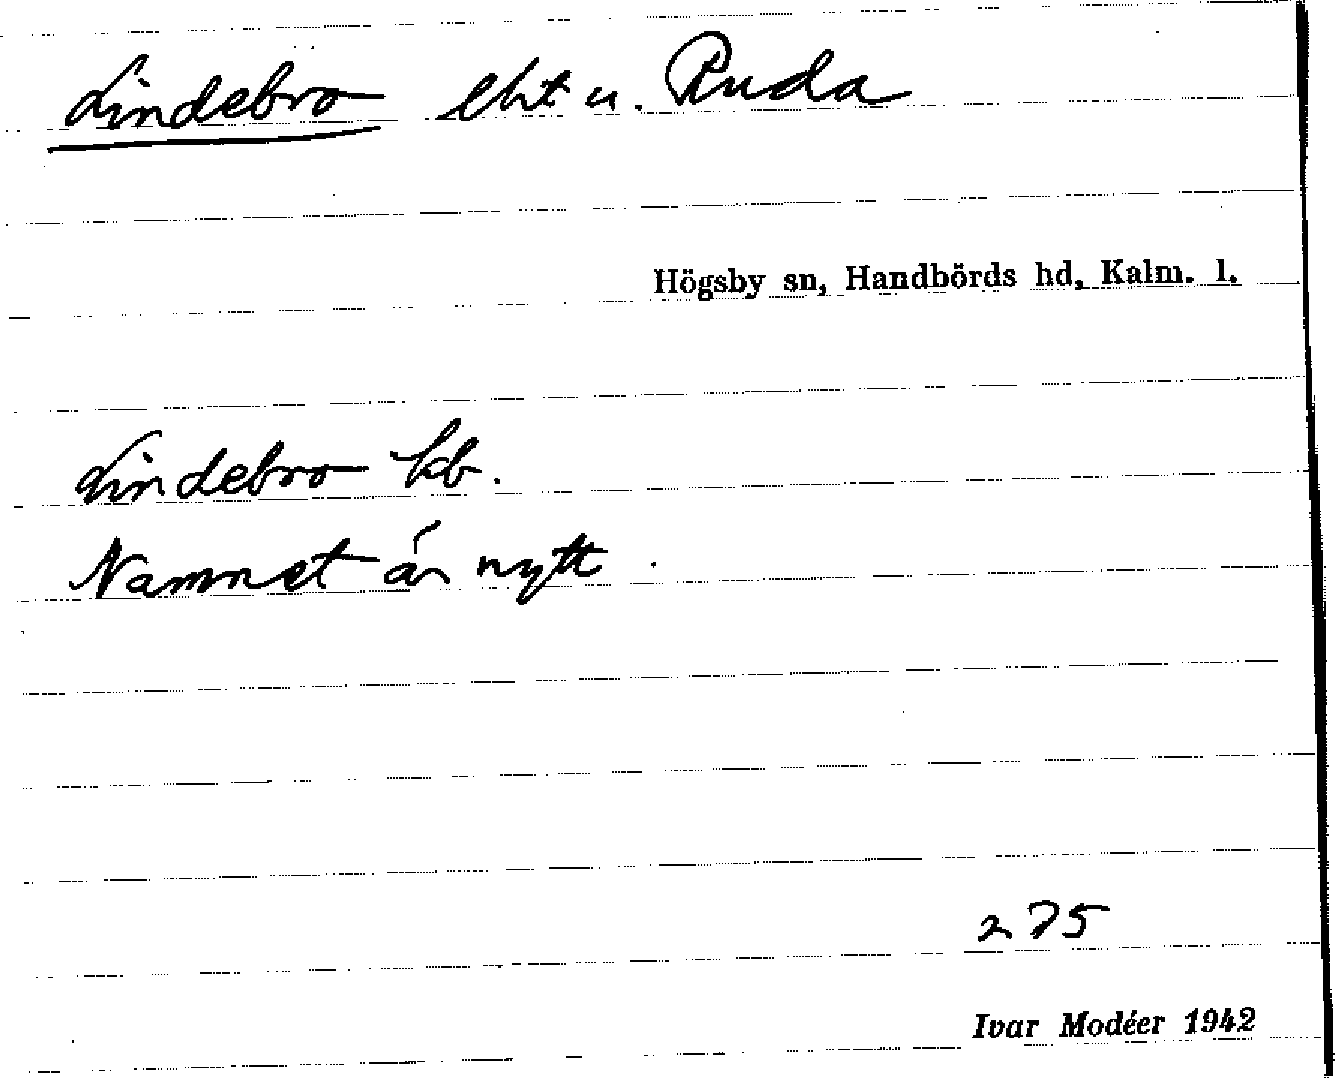 Lindebro lht u. Ruda
Högsby sn, Handbörds hd, Kalm. l.
Lindebro kb.
Namnet är nytt.
275
Ivar Modéer 1942